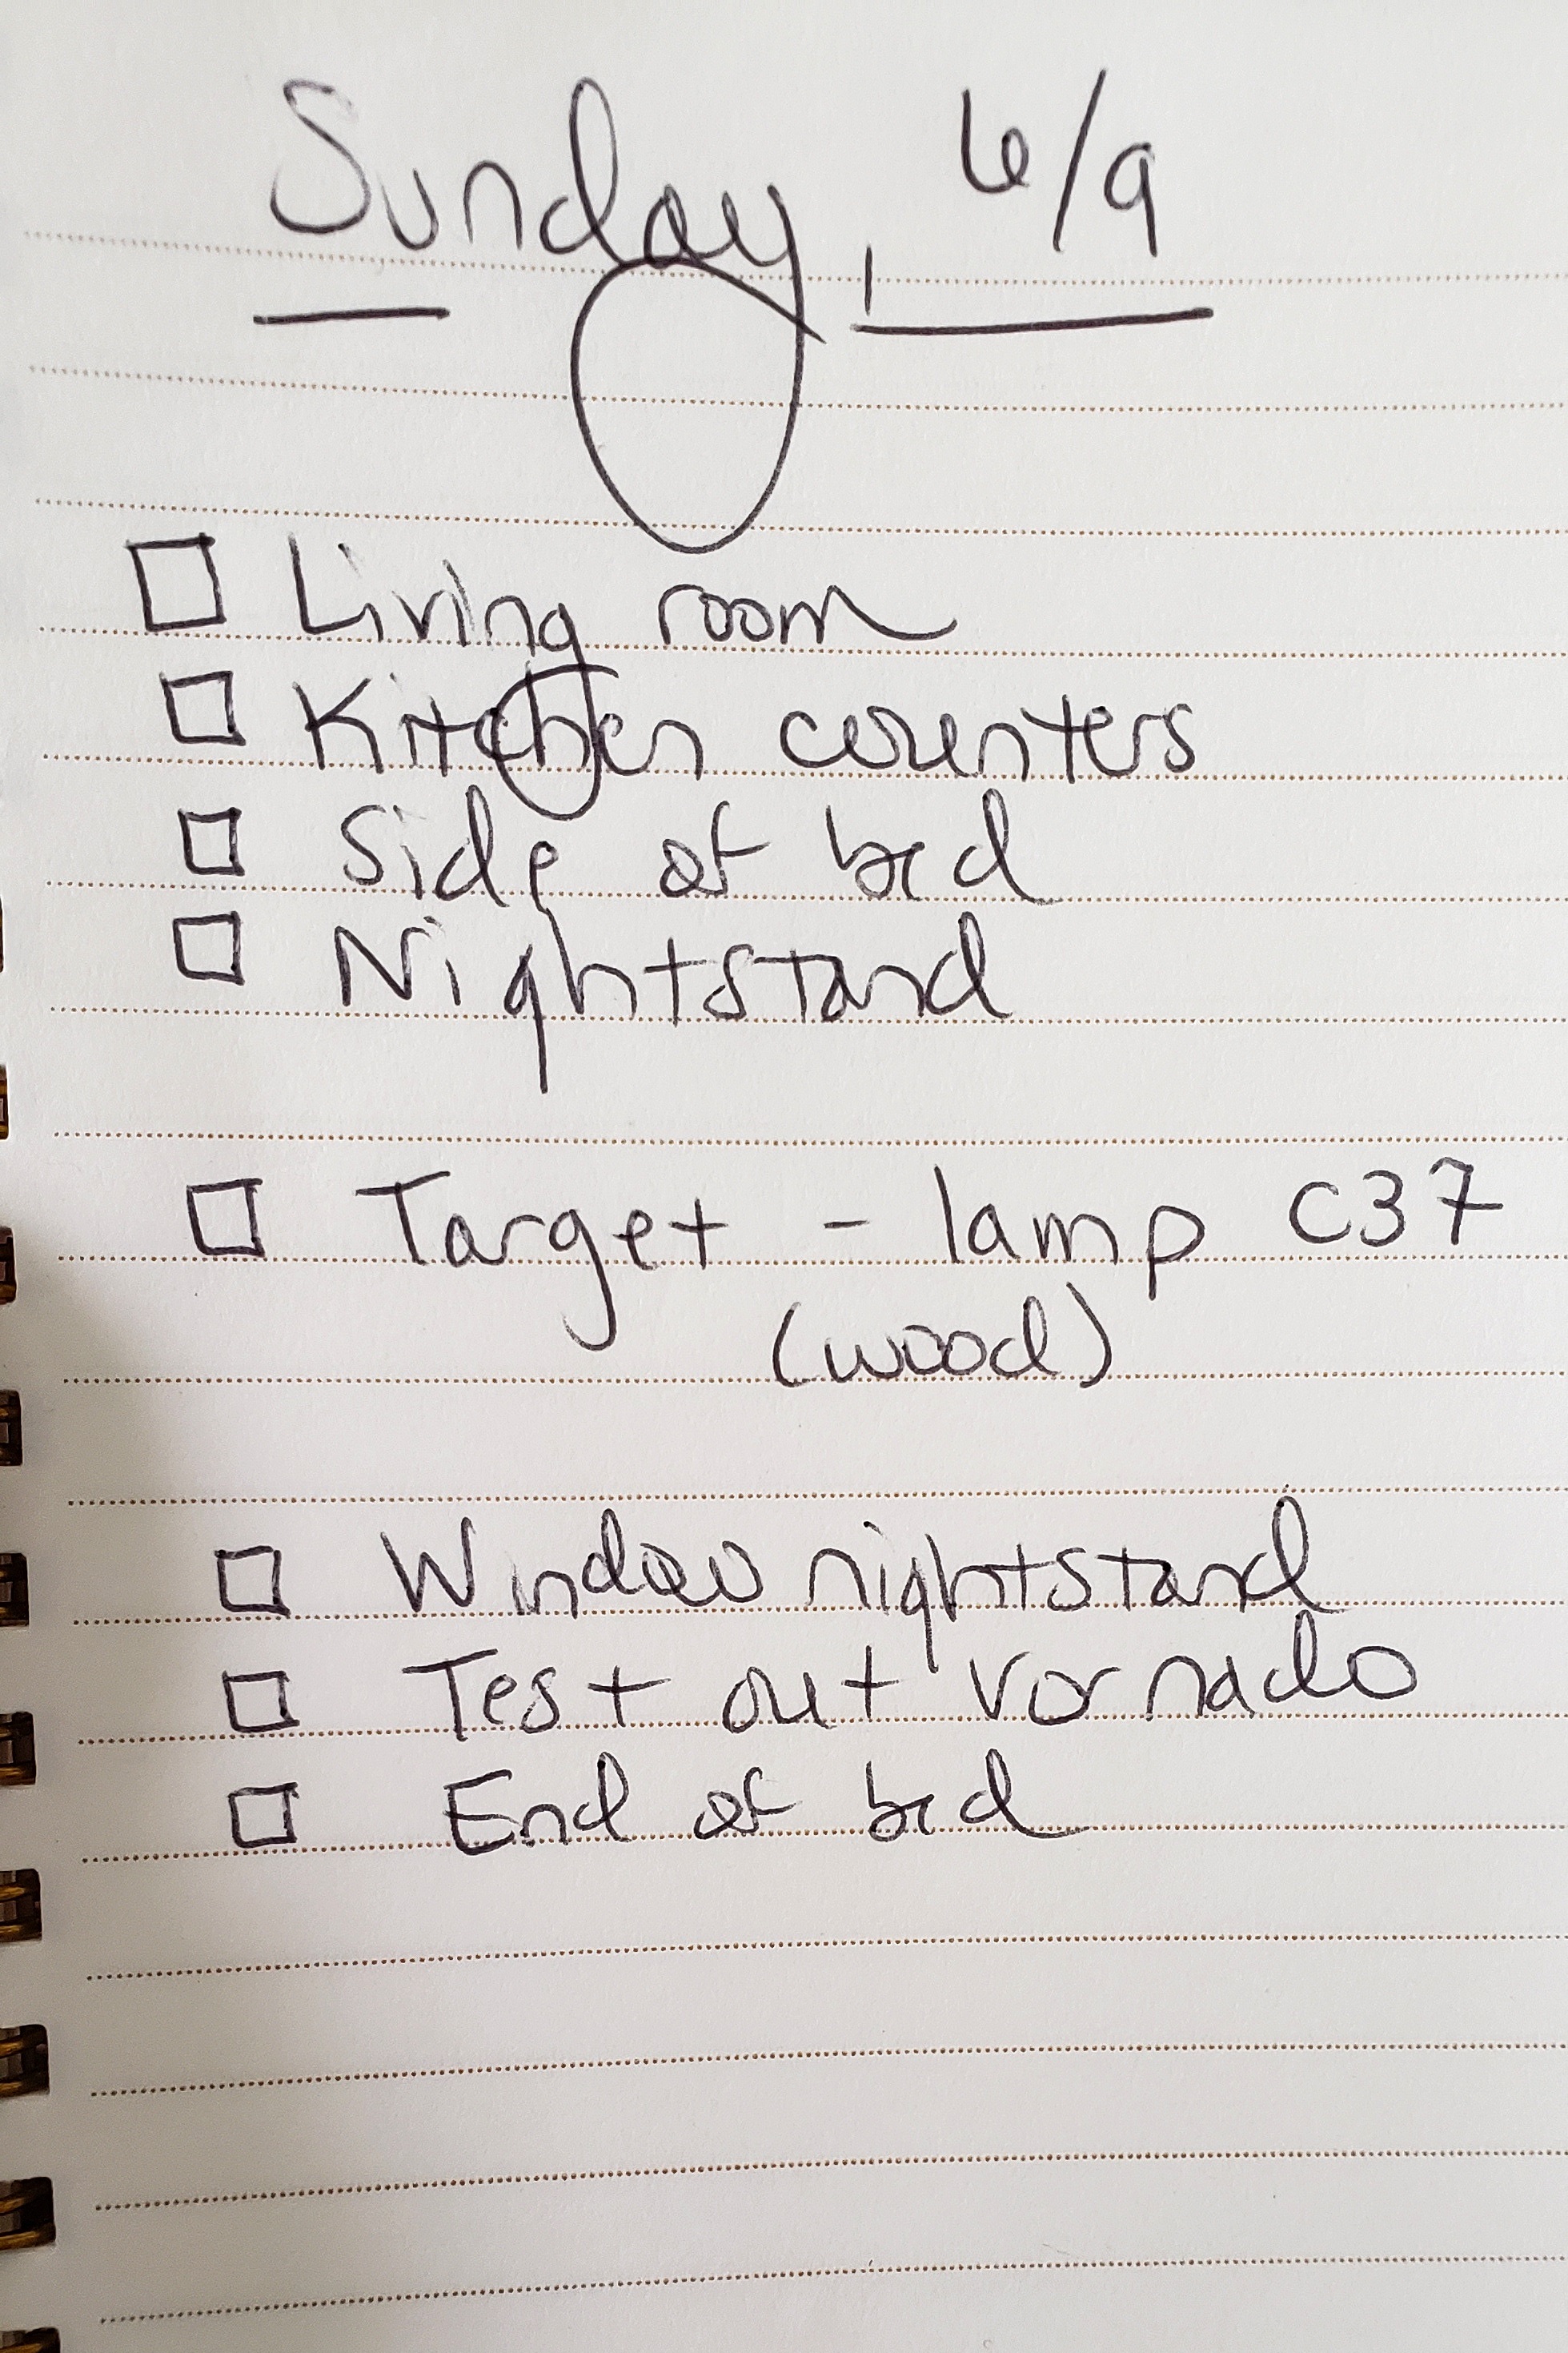 Sunday, 6/9
Living room
Kitchen counters
Side of bed
Nightstand
Target - lamp C37
(wood)
Window nightstand
Test out Vornado
End of bed